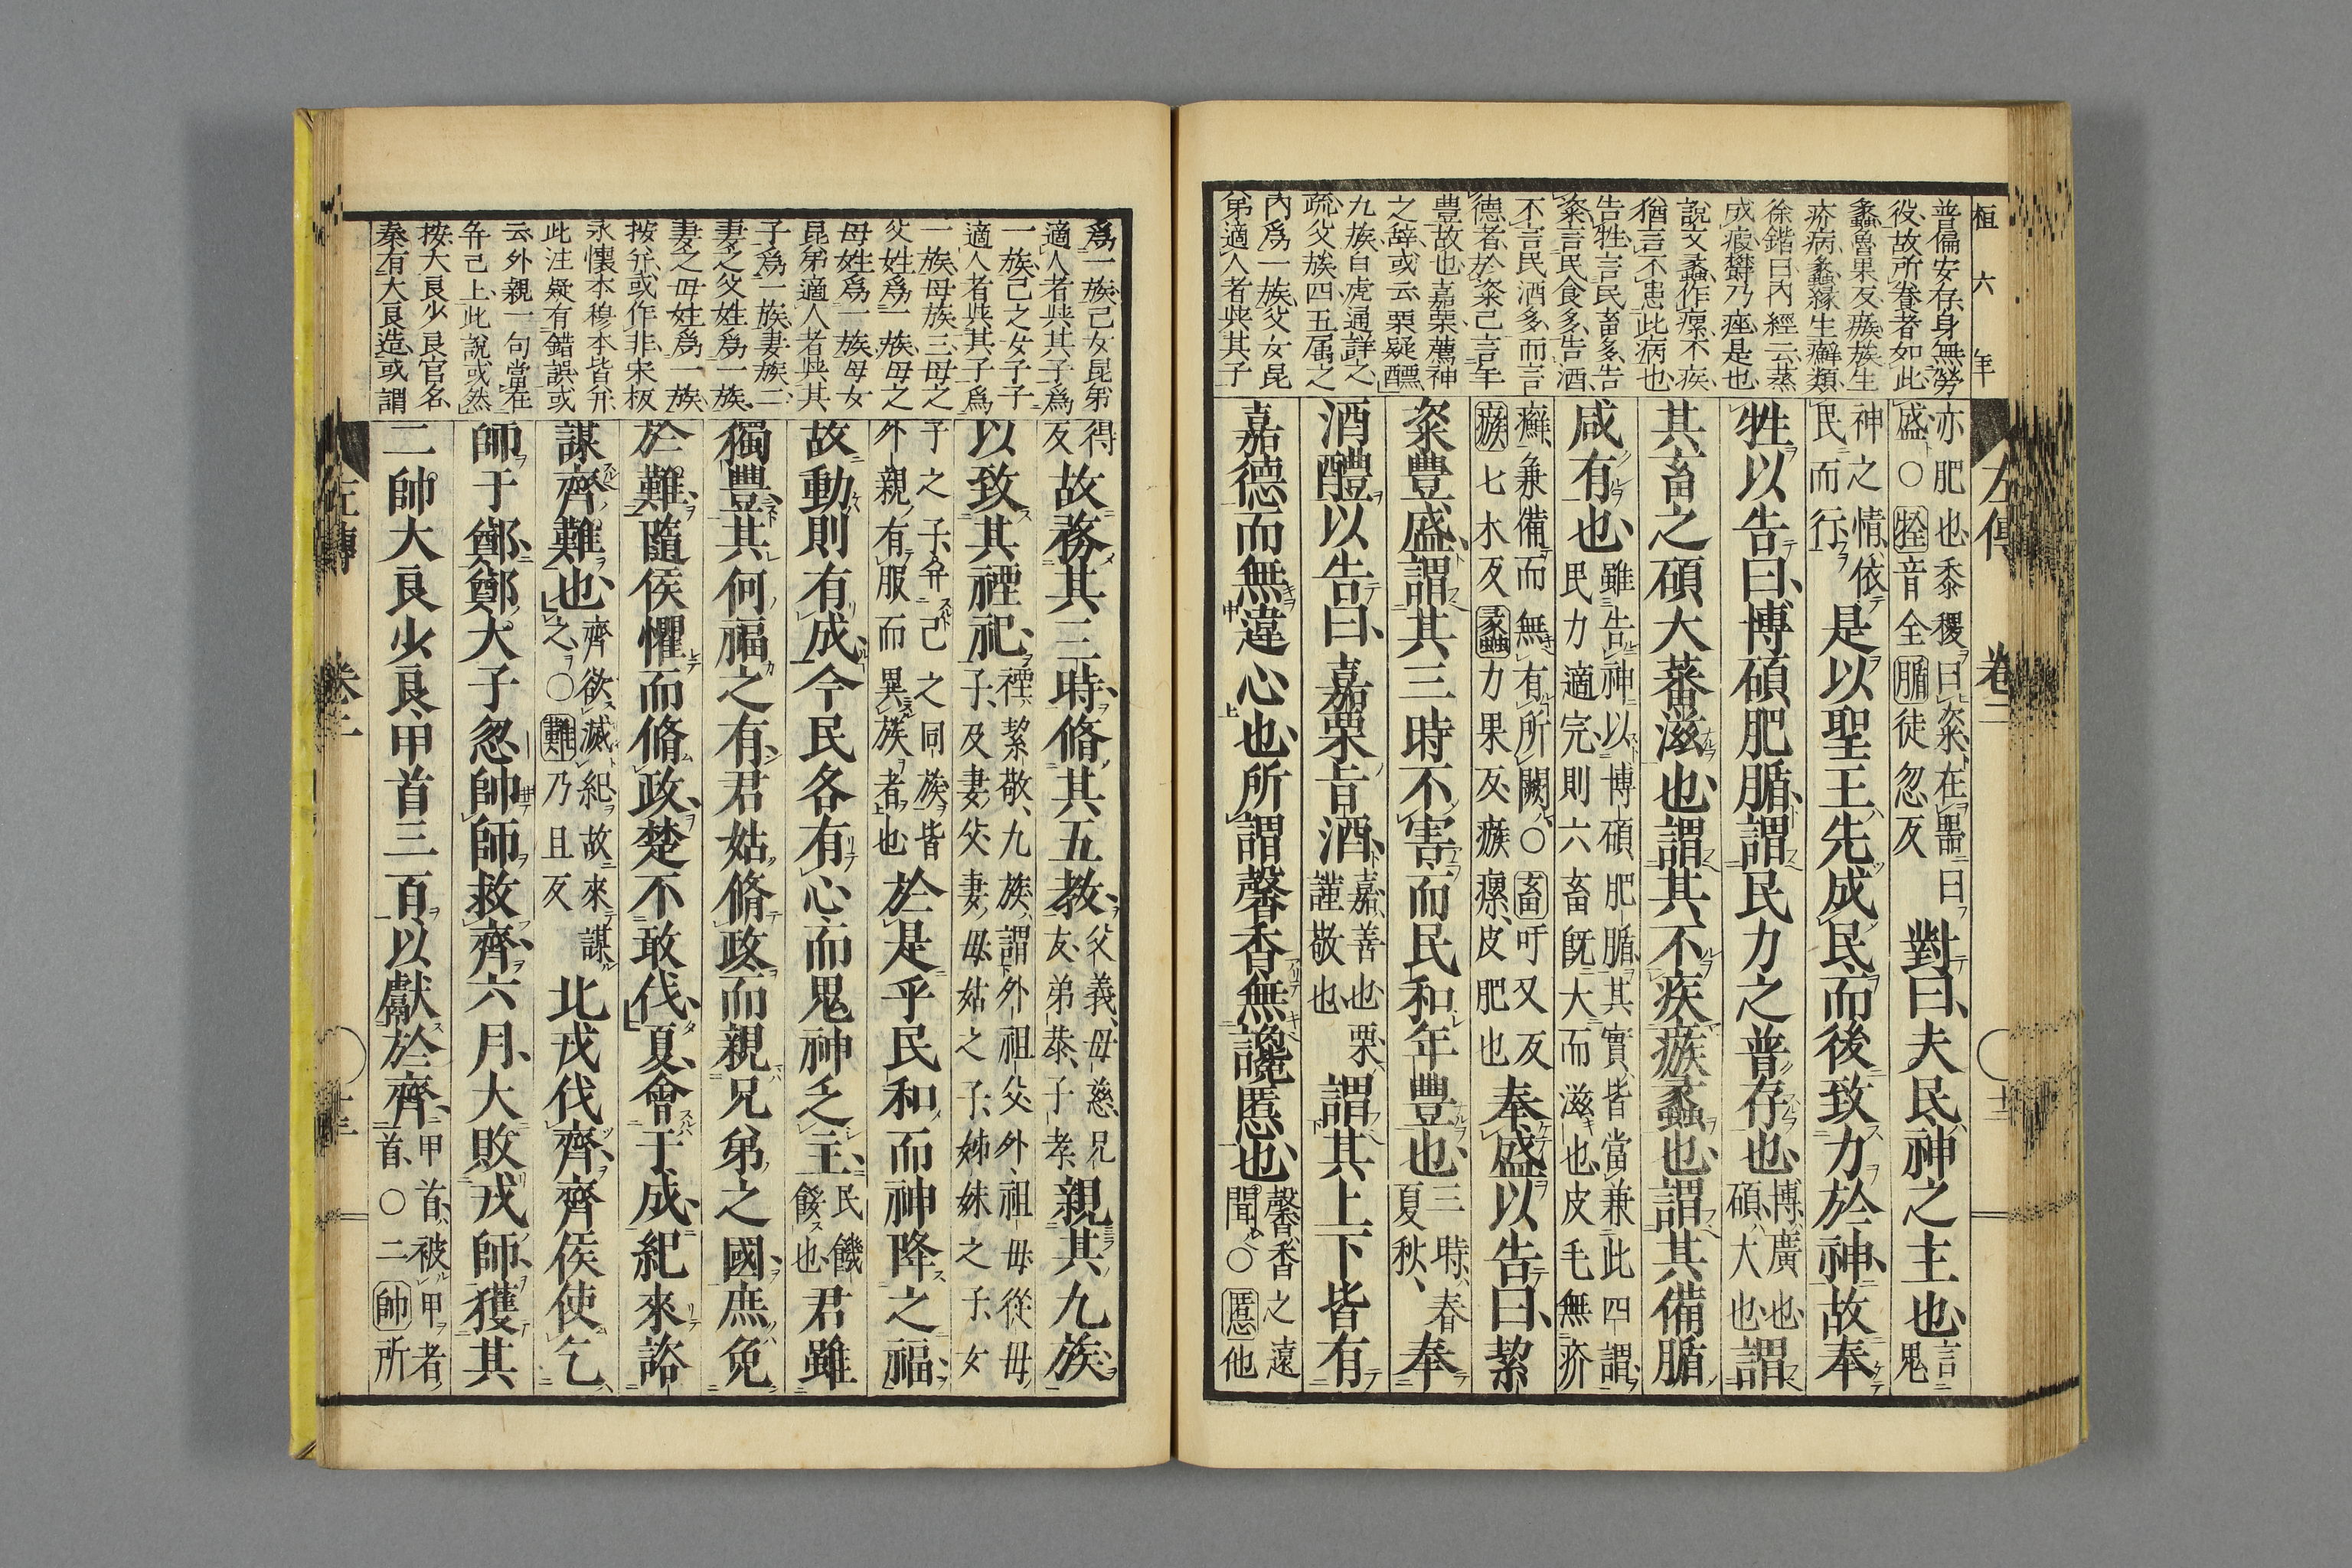 桓 六 年
普偏安存身無勞
役故所養者如此
蠡魯果反瘯族生
疥病蠡緣生癬類
徐鍇曰内經云蒸
成痤欝乃痤是也
說文蠡作瘰不疾
猶言不患此病也
告牲言民畜多告
粢言民食多告酒
不言民酒多而言
德者於粢已言年
豐故也嘉栗薦神
之辭或云栗疑醺
九族白虎通詳之
疏父族四五属之
内爲一族父女昆
弟適人者與其子
左傳 卷二 十二
亦肥也黍稷曰粢在器曰
盛○牷音全腯徒忽反
對曰夫民神之主也
言鬼
神之情依
民而行
是以聖王先成民而後致力於神故奉
牲以告曰博碩肥腯謂民力之普存也
博廣也
碩大也
謂
其畜之碩大蕃滋也謂其不疾瘯蠡也謂其備腯
咸有也
雖告神以博碩肥腯其實皆當兼此四謂
民力適完則六畜既大而滋也皮毛無疥
癬兼備而無有所闕○畜吁又反
瘯七木反蠡力果反瘯瘰皮肥也
奉盛以告曰絜
粢豐盛謂其三時不害而民和年豐也
三時春
夏秋
奉
酒醴以告曰嘉栗旨酒
嘉善也栗
謹敬也
謂其上下皆有
嘉德而無違心也所謂馨香無讒慝也
馨香之遠
聞○慝他
爲一族己女昆弟
適人者與其子爲
一族己之女子子
適人者與其子爲
一族母族三母之
父姓爲一族母之
母姓爲一族母女
昆弟適人者與其
子爲一族妻族二
妻之父姓爲一族
妻之母姓爲一族
按幷或作非宋板
永懷本穆本皆幷
此注疑有錯誤或
云外親一句當在
幷己上此說或然
按大良少良官名
秦有大良造或謂
得
反
故務其三時脩其五教
父義母慈兄
友弟恭子孝
親其九族
以致其禋祀
禋絜敬九族謂外祖父外祖母從母
子及妻父妻母姑之子姊妹之子女
子之子幷己之同族皆
外親有服而異族者也
於是乎民和而神降之福
故動則有成今民各有心而鬼神乏主
民饑
餒也
君雖
獨豐其何福之有君姑脩政而親兄弟之國庶免
於難隨侯懼而脩政楚不敢伐夏會于成紀來諮
謀齊難也
齊欲滅紀故來謀
之○難乃且反
北戎伐齊齊侯使乞
師于鄭鄭大子忽帥師救齊六月大敗戎師獲其
二帥大良少良甲首三百以獻於齊
甲首被甲者
首○二帥所
左傳 卷二 十三